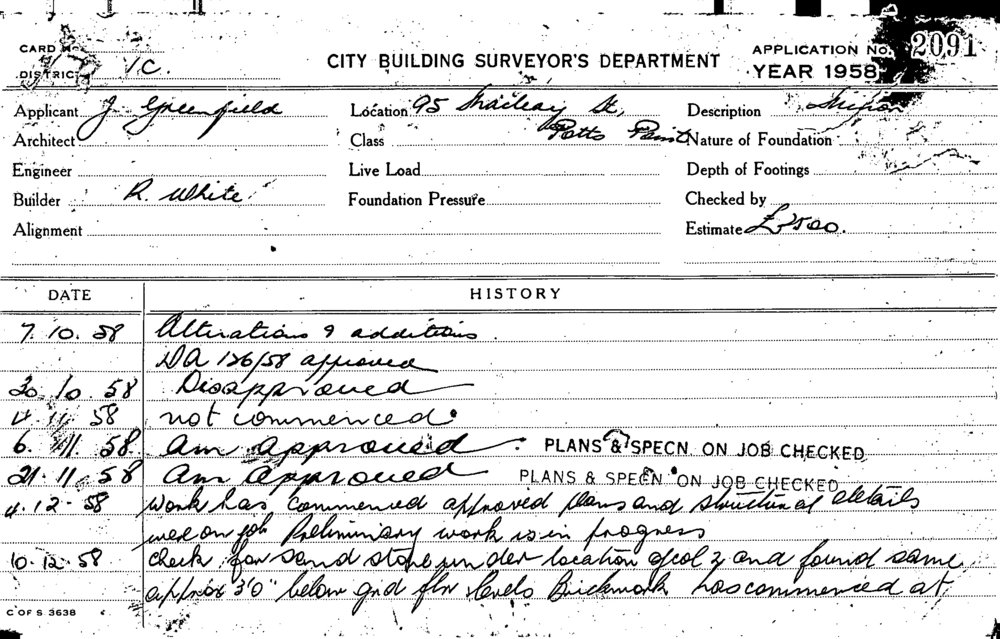 CARD No.
DISTRICT VC.
CITY BUILDING SURVEYOR'S DEPARTMENT
APPLICATION No. 2091
YEAR 1958
Applicant J Greenfield
Location 95 Macleay St,
Description
Architect
Class Potts Point
Nature of Foundation
Engineer
Live Load
Depth of Footings
Builder R. White.
Foundation Pressure
Checked by
Alignment
Estimate £2500.
DATE HISTORY
7. 10. 58 Alterations & additions
DA 126/58 approved
20. 10. 58 Disapproved
4. 11. 58 not commenced.
6. 11. 58. am approved. PLANS & SPECN ON JOB CHECKED
21. 11. 58 am approved PLANS & SPECN ON JOB CHECKED
4. 12. 58 work has commenced approved plans and structural details
were on job Preliminary work is in progress
10. 12. 58 check for sand stone under location of col 2 and found same
approx 3'0" below gnd flr levels Brickwork has commenced at
C OF S 3638